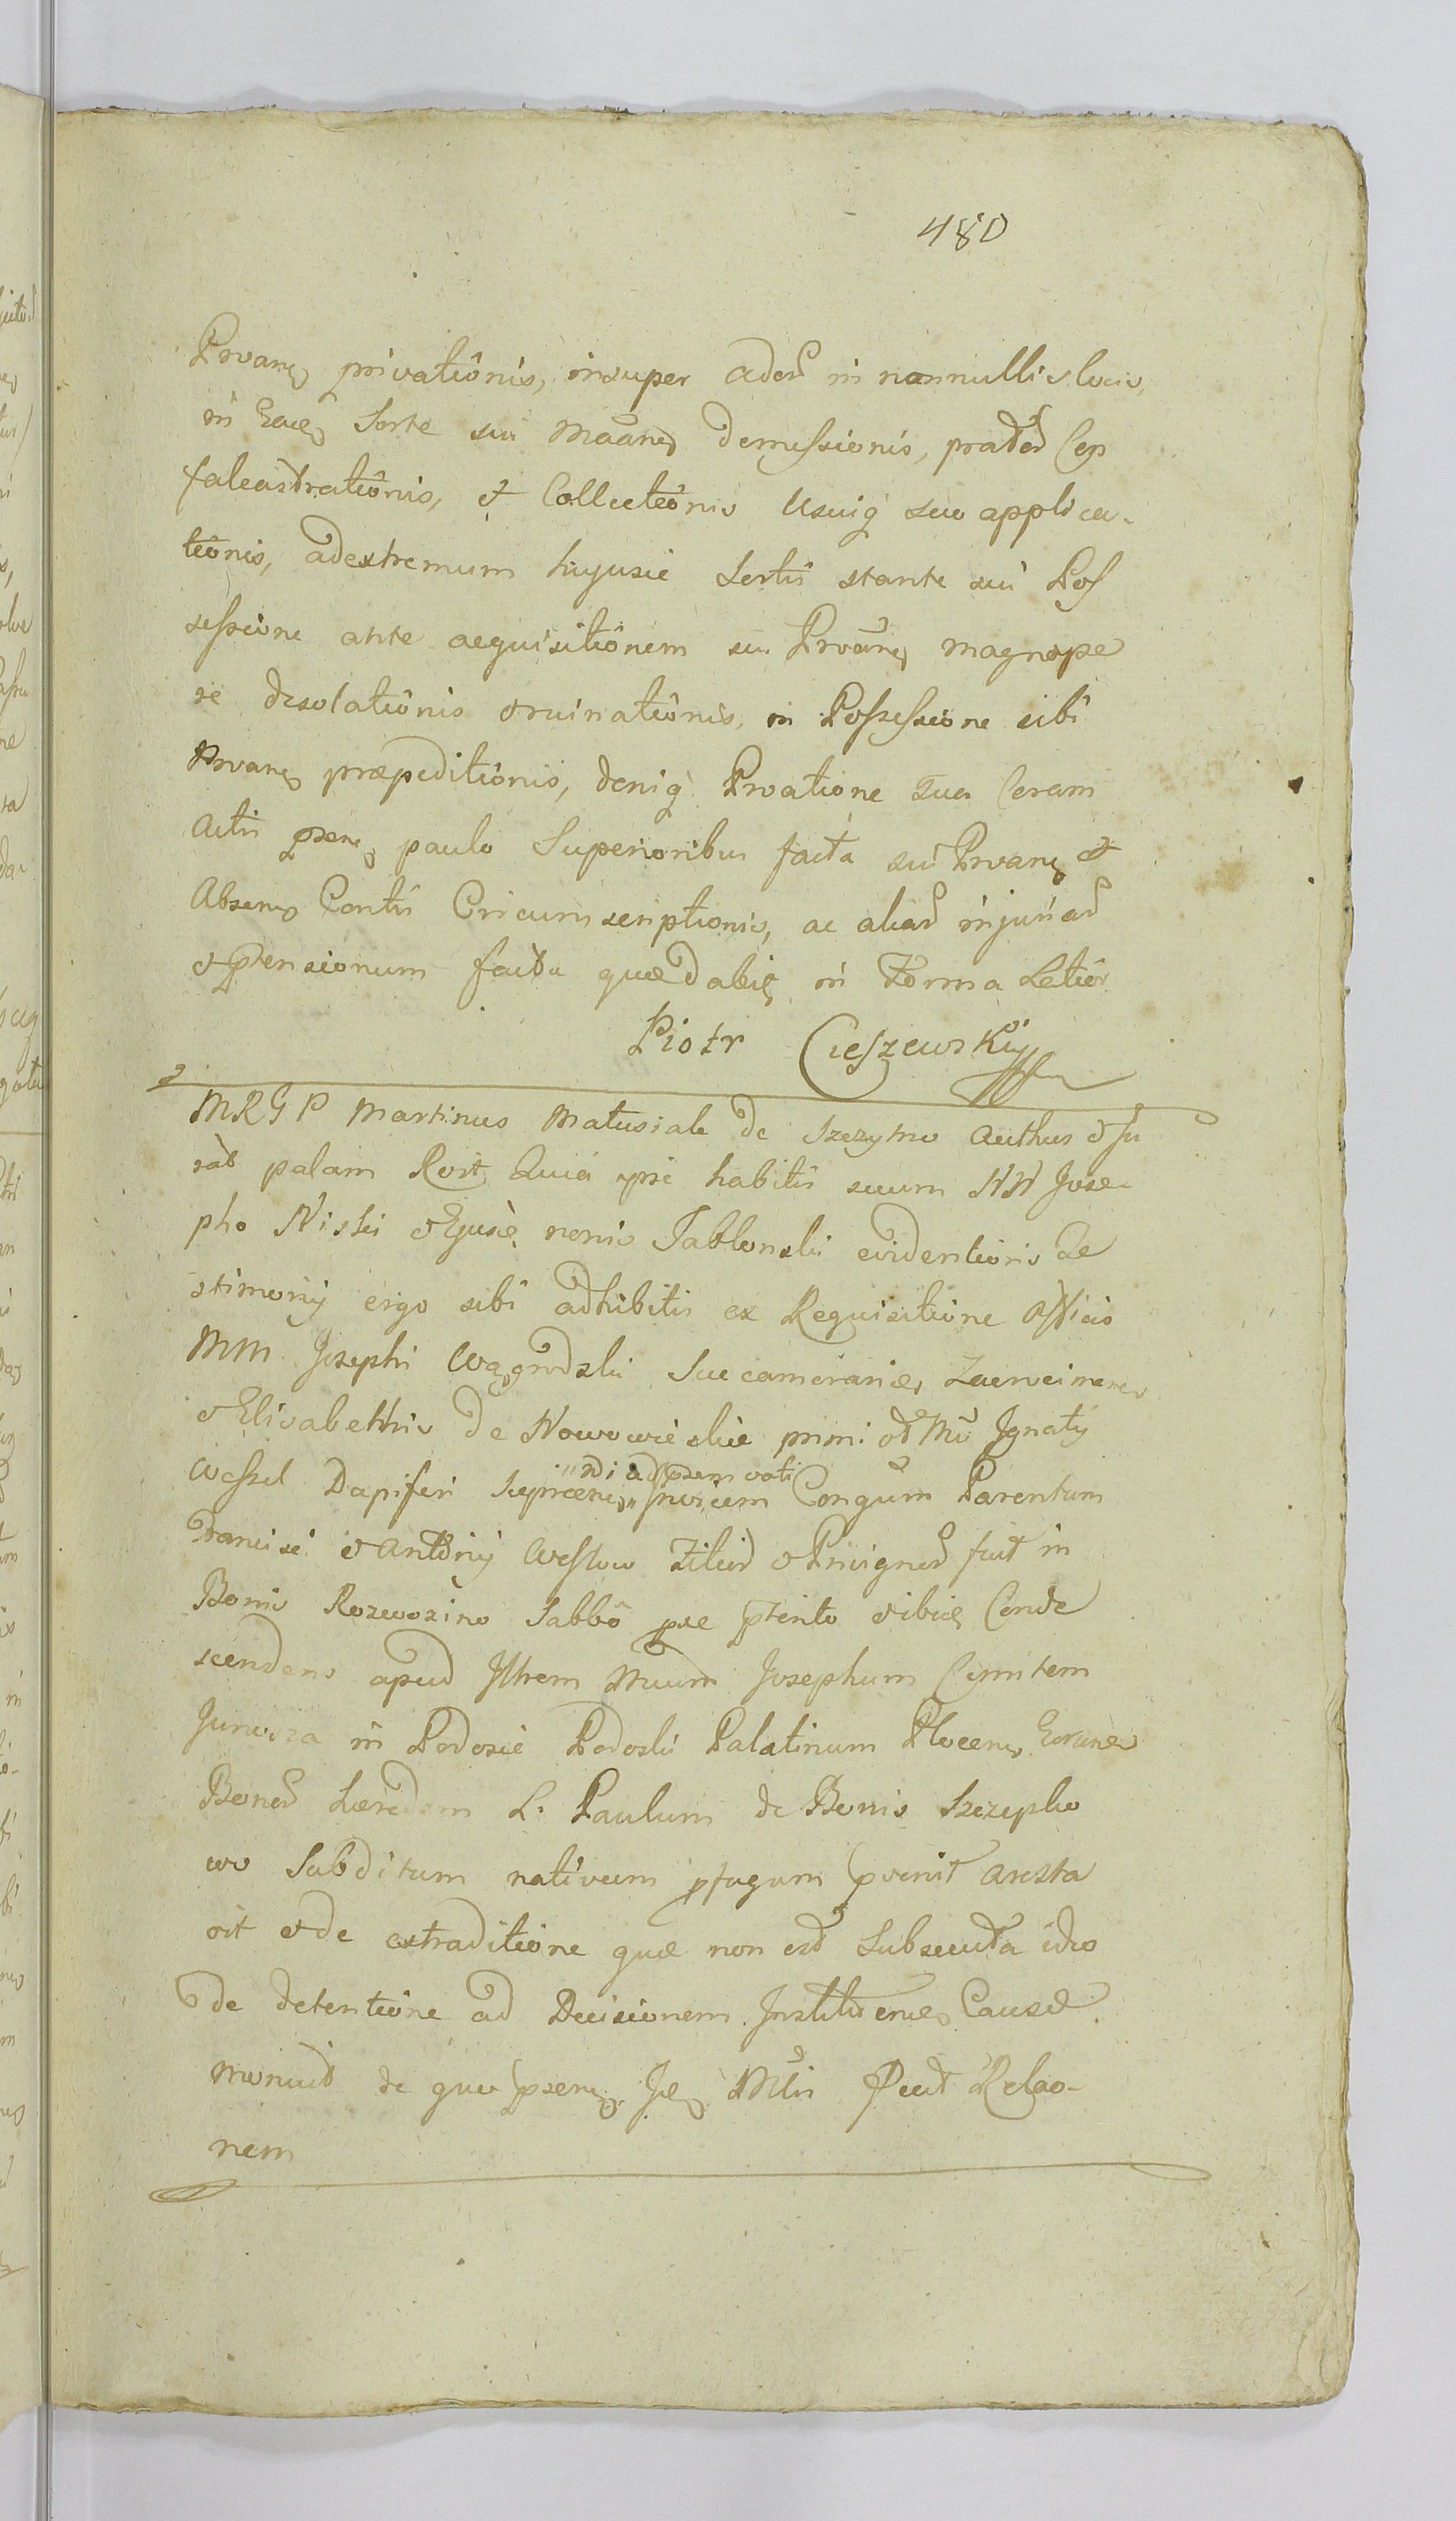 480
Prvane privationis, insuper ader in nonnullis locis,
in Eade Sorte sui Maane demissionis, prator Cen
faleastrationis, et Collectionis Usuiq suo applica-
tionis, ad extremum hujusie Sortis stante sui Pos
sessione ante aequisitionem sui Prvane magnope
re desolationis et ruinationis, in Possessione sibi
Prvane praepeditionis, deniq Prvatione sua Coram
Actis psene paulo Superioribus facta sui Prvane et
Absens Contu Circumscriptionis, ac aliar injuriar
et pensionum facta quae dabit in Forma Latior
Piotr Cieszewski
MRGP Martinus Matusiak de Szczytno Authus et Ju
rat palam Rvit Quia ipse habitis secum NN Jose-
pho Niski et Ejusie nenio Jablonski evidentioris Te
stimonij ergo sibi adhibitis ex Requisitione Officio
MM Josephi Wągrodzki Succamerarii Zacroimens
et Elisabethis de Nowowieskie primi ot Mi Ignatij
ndi ad psem voti
Wessel Dapiferi Sieprcens Invicem Congum Parentum
Francisi et Antonij Wesslow Filior et Privignor fuit in
Bonis Rozwozino Sabbo pxe pterito et ibiq Conde
scendens apud Illrem Mcum Josephum Comitem
Junosza in Podosie Podoski Palatinum Plocens Eorund
Bonor haeredem L. Paulum de Bonis Szczepko
wo Subditum nativum pfugum pvenit Aresta
vit et de extraditione quae non est Subsecuta ideo
de detentione ad Decisionem Instituendae Causae
monuit de quo psene Je Min fecit Relao-
nem